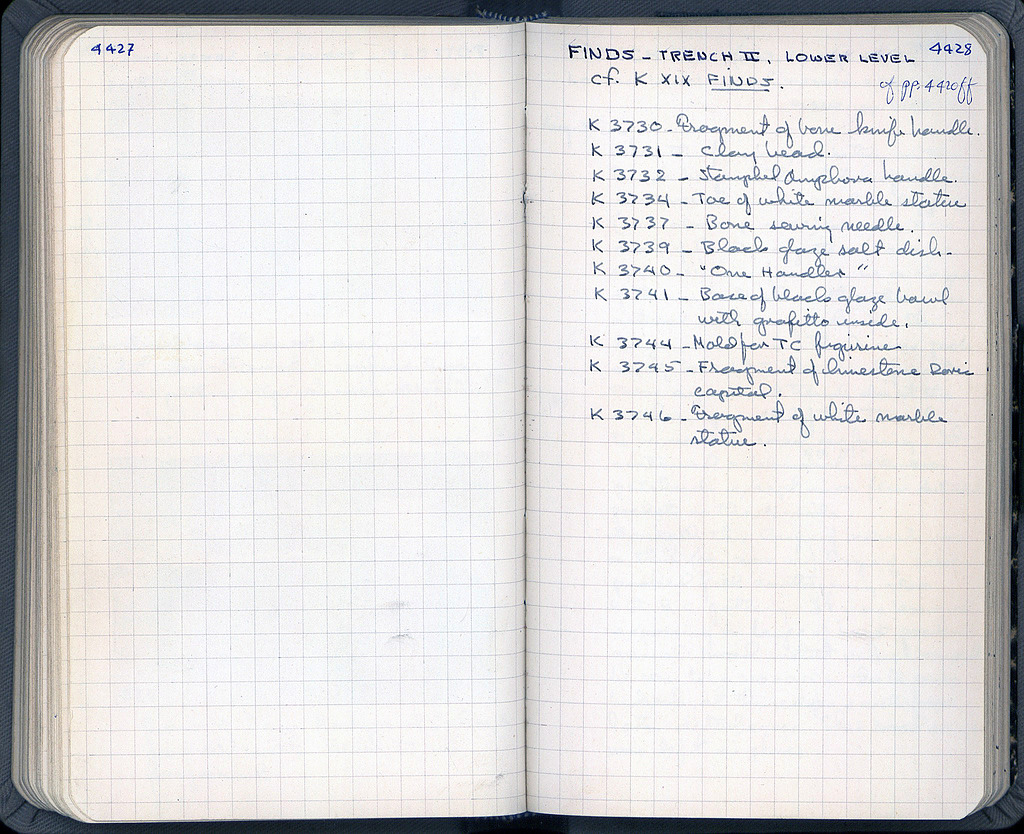 4427
4428
FINDS - TRENCH II, LOWER LEVEL
cf. K XIX FINDS.
cf pp. 4420ff
K 3730 - Fragment of bone knife handle.
K 3731 - Clay bead.
K 3732 - Stamped Amphora handle.
K 3734 - Toe of white marble statue
K 3737 - Bone sewing needle.
K 3739 - Black glaze salt dish -
K 3740 - "One Handler"
K 3741 - Base of black glaze bowl
with grafitto inside.
K 3744 - Mold for TC figurine
K 3745 - Fragment of limestone Doric
capital.
K 3746 - Fragment of white marble
statue.